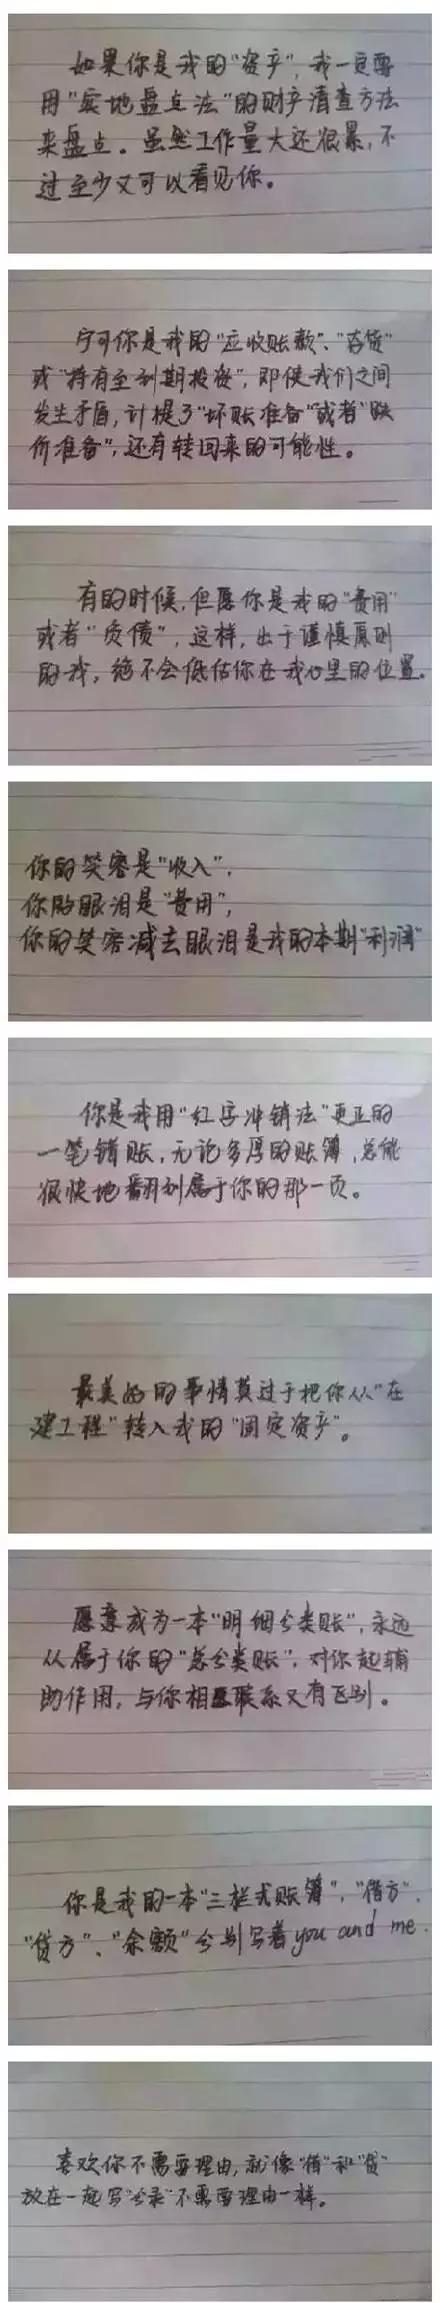 如果你是我的"资产",我一定要
用"实地盘点法"的财产清查方法
来盘点。虽然工作量大还很累,不
过至少又可以看见你。
宁可你是我的"应收账款"、"存货"
或"持有至到期投资",即使我们之间
发生矛盾,计提了"坏账准备"或者"跌
价准备",还有转回来的可能性。
有的时候,但愿你是我的"费用"
或者"负债",这样,出于谨慎原则
的我,绝不会低估你在我心里的位置。
你的笑容是"收入",
你的眼泪是"费用",
你的笑容减去眼泪是我的本期"利润"
你是我用"红字冲销法"更正的
一笔错账,无论多厚的账簿,总能
很快地翻到属于你的那一页。
最美好的事情莫过于把你从"在
建工程"转入我的"固定资产"。
愿意成为一本"明细分类账",永远
从属于你的"总分类账",对你起辅
助作用,与你相联系又有区别。
你是我的一本"三栏式账簿","借方"、
"贷方"、"余额"分别写着you and me.
喜欢你不需要理由,就像"借"和"贷"
放在一起写"分录"不需要理由一样。